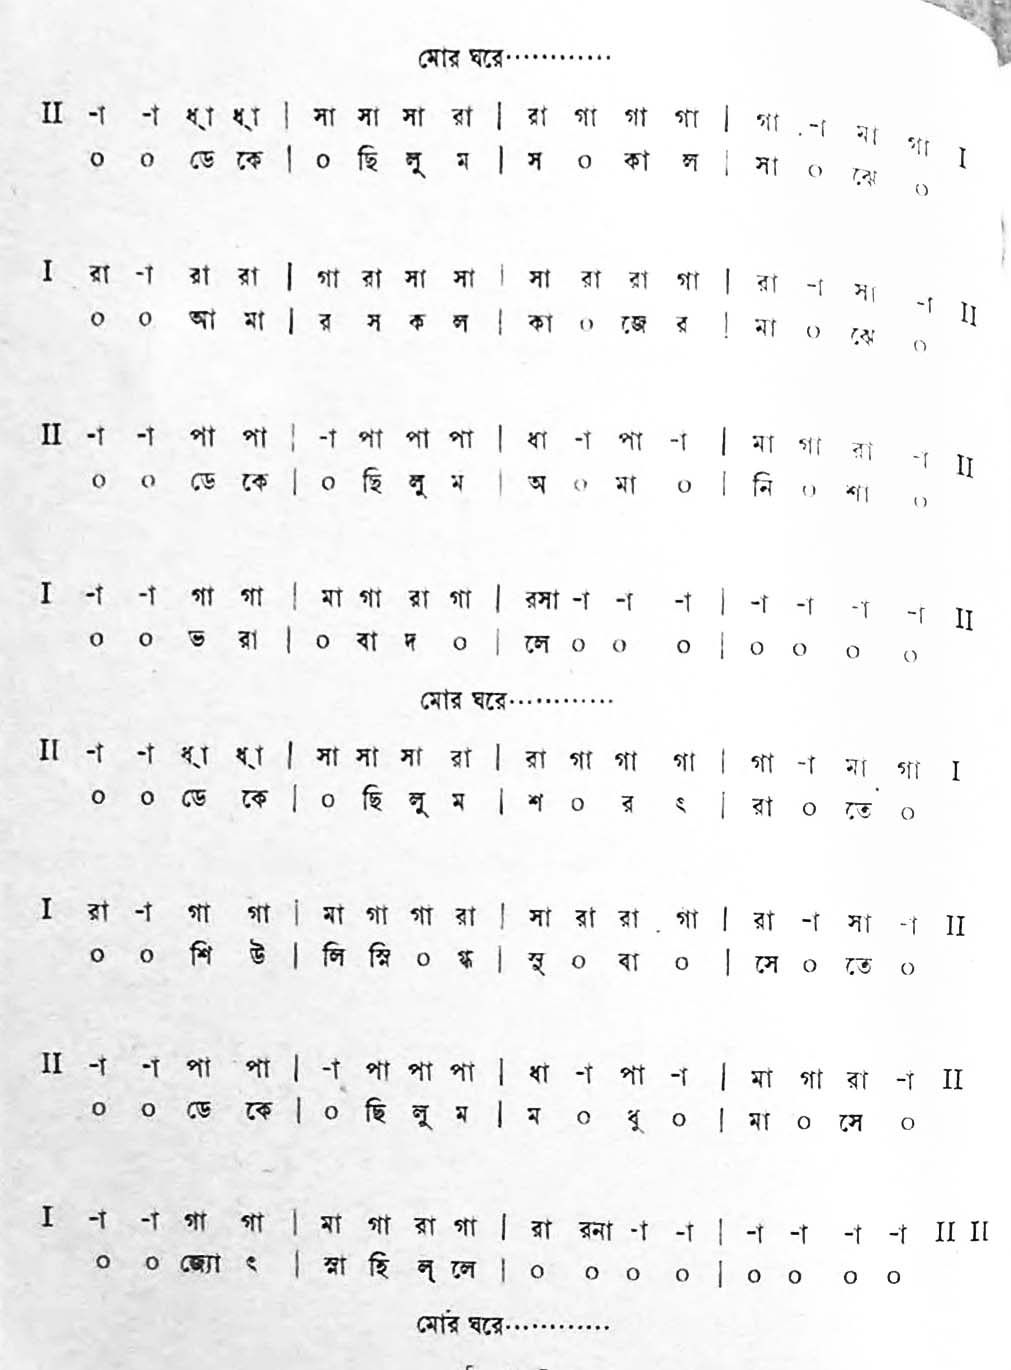 মোর ঘরে............
II -া -া ধ্া ধ্া | সা সা সা রা | রা গা গা গা | গা -া মা গা I
০ ০ ডে কে | ০ ছি লু ম | স ০ কা ল | সা ০ ঝে ০
I রা -া রা রা | গা রা সা সা | সা রা রা গা | রা -া সা -া II
০ ০ আ মা | র স ক ল | কা ০ জে র | মা ০ ঝে ০
II -া -া পা পা | -া পা পা পা | ধা -া পা -া | মা গা রা -া II
০ ০ ডে কে | ০ ছি লু ম | অ ০ মা ০ | নি ০ শা ০
I -া -া গা গা | মা গা রা গা | রসা -া -া -া | -া -া -া -া II
০ ০ ভ রা | ০ বা দ ০ | লে ০ ০ ০ | ০ ০ ০ ০
মোর ঘরে............
II -া -া ধ্া ধ্া | সা সা সা রা | রা গা গা গা | গা -া মা গা I
০ ০ ডে কে | ০ ছি লু ম | শ ০ র ৎ | রা ০ তে ০
I রা -া গা গা | মা গা গা রা | সা রা রা গা | রা -া সা -া II
০ ০ শি উ | লি স্নি ০ গ্ধ | সু ০ বা ০ | সে ০ তে ০
II -া -া পা পা | -া পা পা পা | ধা -া পা -া | মা গা রা -া II
০ ০ ডে কে | ০ ছি লু ম | ম ০ ধু ০ | মা ০ সে ০
I -া -া গা গা | মা গা রা গা | রা রনা -া -া | -া -া -া -া II II
০ ০ জ্যো ৎ | স্না হি ল্ লে | ০ ০ ০ ০ | ০ ০ ০ ০
মোর ঘরে............